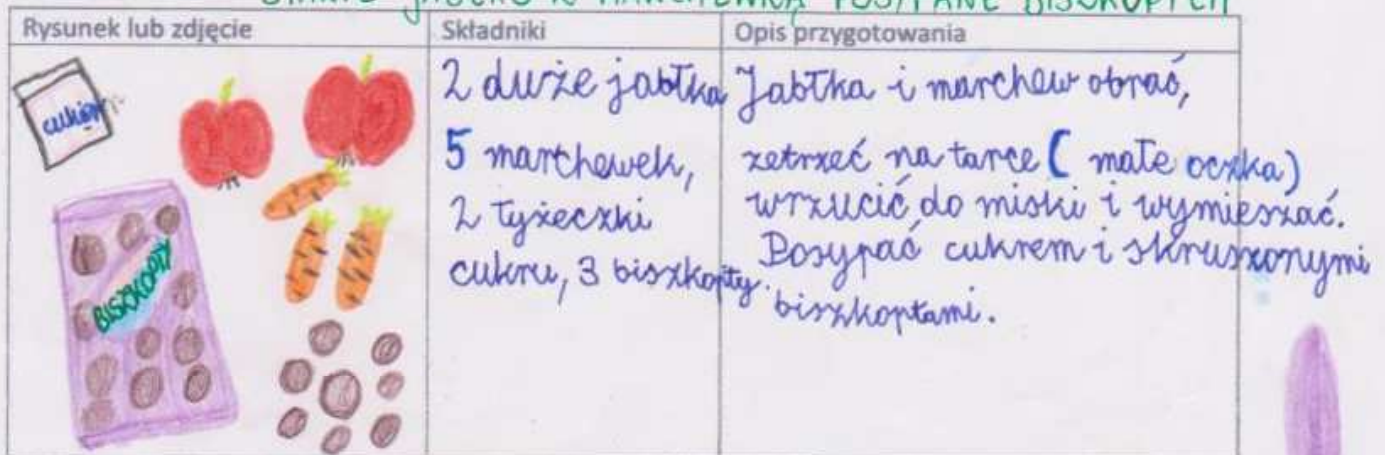 JABŁKO Z MARCHEWKĄ POSYPANE BISZKOPTEM
Rysunek lub zdjęcie
Składniki
Opis przygotowania
cukier
BISZKOPTY
2 duże jabłka
5 marchewek,
2 łyżeczki
cukru, 3 biszkopty.
Jabłka i marchew obrać,
zetrzeć na tarce ( małe oczka)
wrzucić do miski i wymieszać.
Posypać cukrem i skruszonymi
biszkoptami.